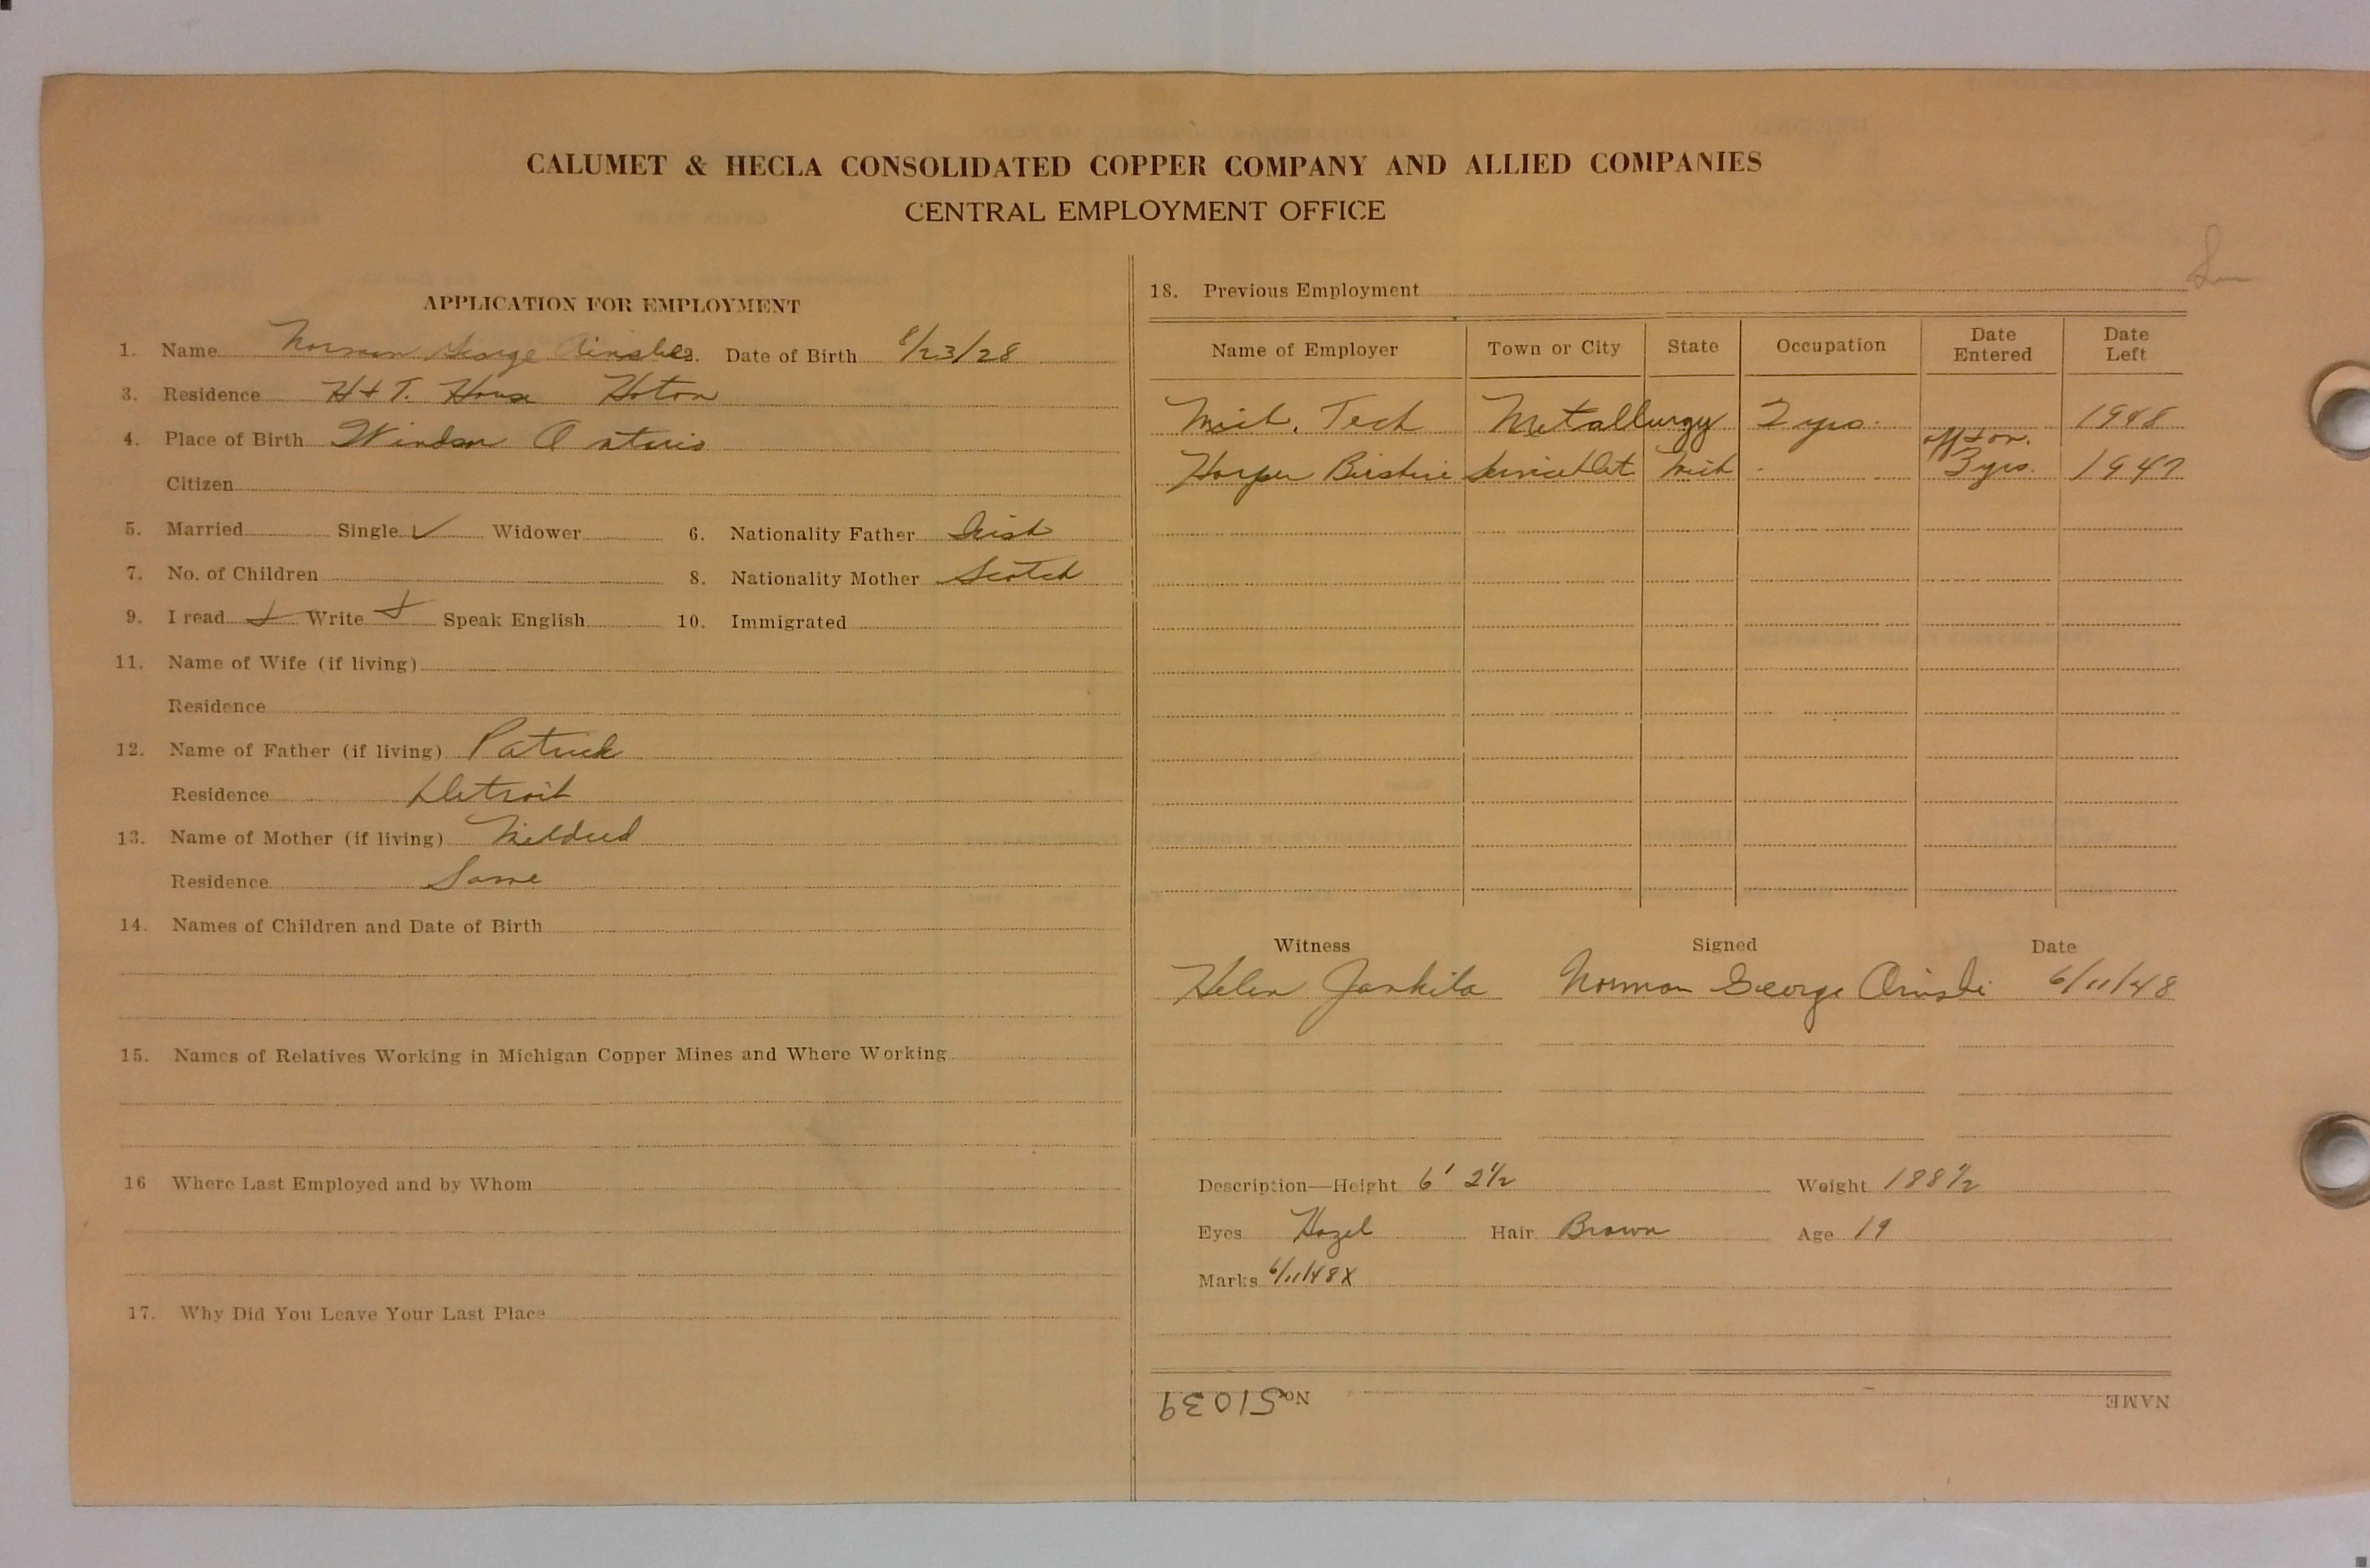 CALUMET & HECLA CONSOLIDATED COPPER COMPANY AND ALLIED COMPANIES
CENTRAL EMPLOYMENT OFFICE
APPLICATION FOR EMPLOYMENT
1. Name Norman George 2. Date of Birth 8/23/28
3. Residence H & T. House Hoton
4. Place of Birth Windsor Ontario
Citizen
5. Married Single ✓ Widower 6. Nationality Father Irish
7. No. of Children 8. Nationality Mother Scotch
9. I read Write Speak English 10. Immigrated
11. Name of Wife (if living)
Residence
12. Name of Father (if living) Patrick
Residence Detroit
13. Name of Mother (if living) Mildred
Residence Same
14. Names of Children and Date of Birth
15. Names of Relatives Working in Michigan Copper Mines and Where Working
16 Where Last Employed and by Whom
17. Why Did You Leave Your Last Place
18. Previous Employment
Name of Employer Town or City State Occupation Date Entered Date Left
Mich. Tech Metallurgy 2 yrs. 1948
off & on.
Harper Service Det. Mich 3 yrs. 1947
Witness Signed Date
Helen Norman George 6/11/48
Description—Height 6' 2½ Weight 188½
Eyes Hazel Hair Brown Age 19
Marks 6/11/48 X
NAME No. 51039